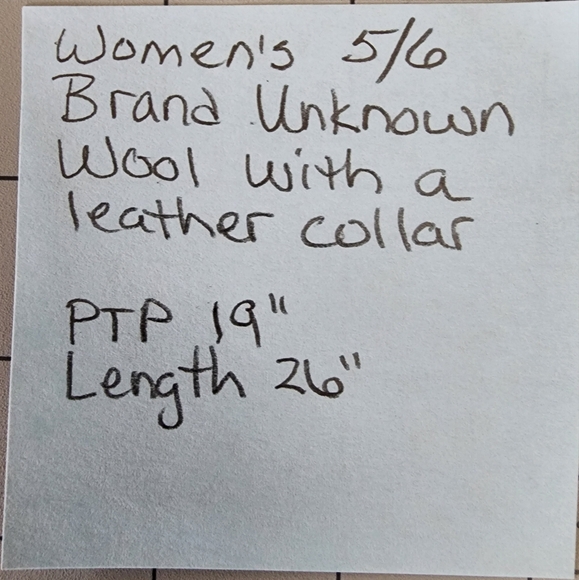 Women's 5/6
Brand Unknown
Wool with a
leather collar
PTP 19"
Length 26"